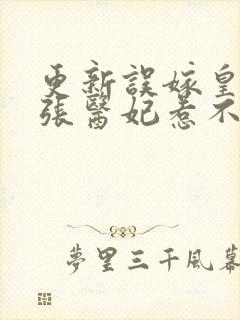 更新誤嫁皇
張醫妃惹不
夢里三千風幕